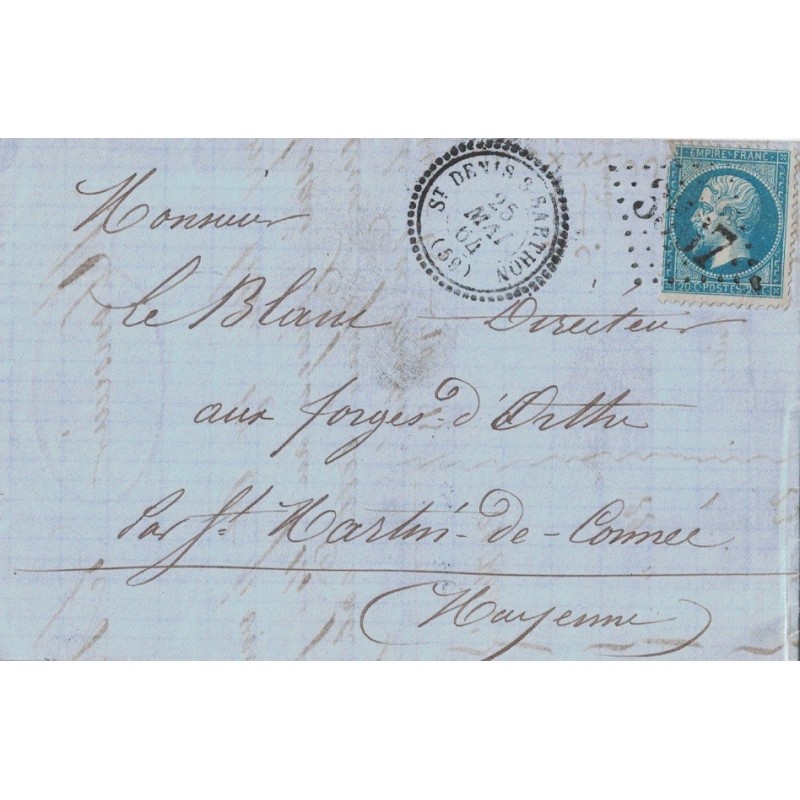 ST DENIS S SARTHON
25
MAI
64
(59)
EMPIRE FRANC
20 C POSTES
Monsieur
Le Blanc Directeur
aux forges d'Orthe
par St Martin-de-Connée
(Mayenne)